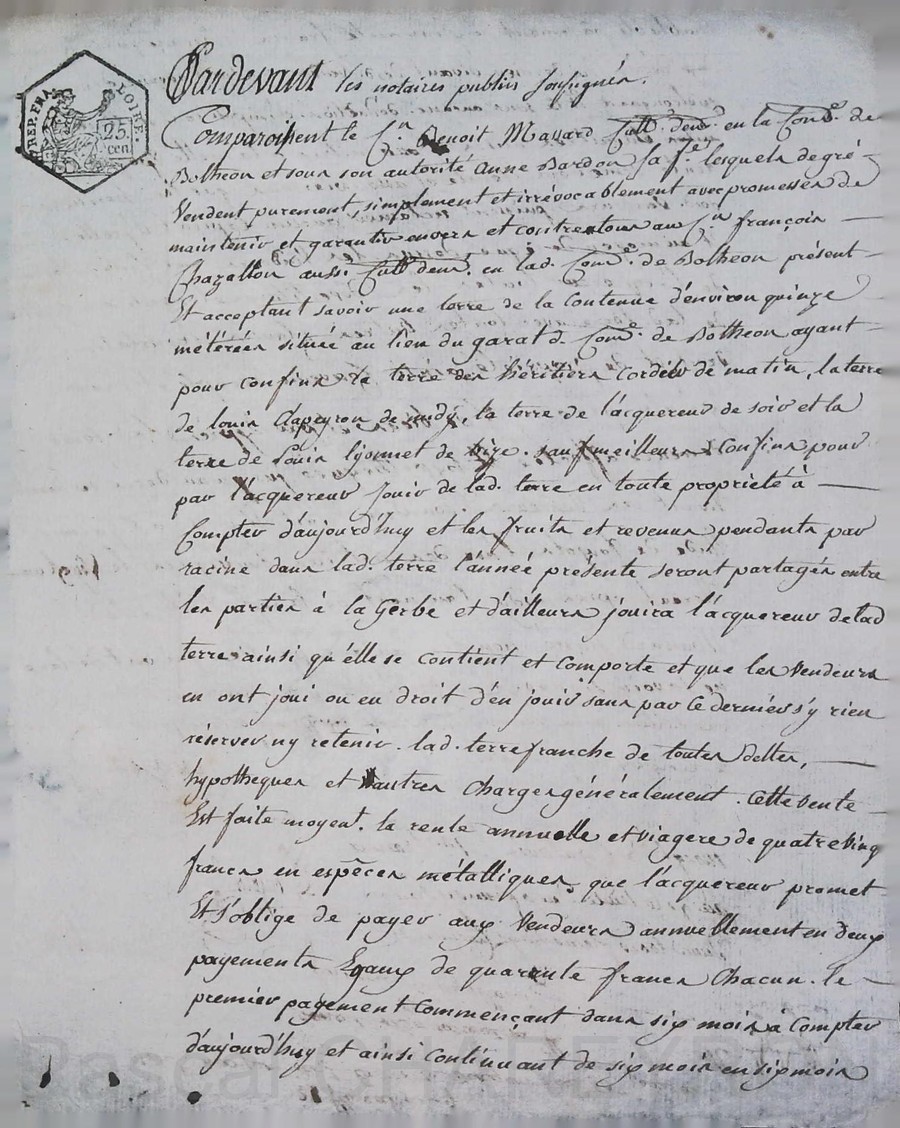 REP. FRA. LOIRE.
25. cen.
Pardevant les notaires publics soussignés.
Comparoissent le Cn. Benoit Massard Cultr. demt. en la Come. de
Botheon et sous son autorité anne Bardon sa fe. lesquels de gré
Vendent purement, simplement et irrévocablement avec promesses de
maintenir et garantir envers et contre tous au Cn. françois
Chazallon aussi Cultr demt. en lad. Come. de Botheon présent
Et acceptant savoir une terre de la Contenue d'environ quinze
métérées située au lieu du garat d. Come. de Botheon ayant
pour confins la terre des héritiers Cordier de matin, la terre
de louis Clapeyron de midy, la terre de l'acquereur de soir et la
terre de Louis lyonnet de bize. sauf meilleurs Confins pour
par l'acquereur jouir de lad. terre en toute propriété à
Compter d'aujourd'huy et les fruits et revenus pendants par
racine dans lad. terre l'année présente seront partagés entre
les parties à la Gerbe et d'ailleurs jouira l'acquereur de lad
terre ainsi qu'élle se contient et comporte et que les Vendeurs
en ont joui ou eu droit d'en jouir sans par Ce derniers s'y rien
réserver ny retenir. lad. terre franche de toutes dettes,
hypotheques et autres Charges généralement. Cette vente
Est faite moyent. la rente annuelle et viagere de quatre Ving
francs en espèces métalliques que l'acquereur promet
Et s'oblige de payer aux Vendeurs annuellement en deux
payements Egaux de quarante francs Chacun. le
premier payement Commençant dans six mois à Compter
d'aujourd'huy et ainsi continuant de six mois en six mois